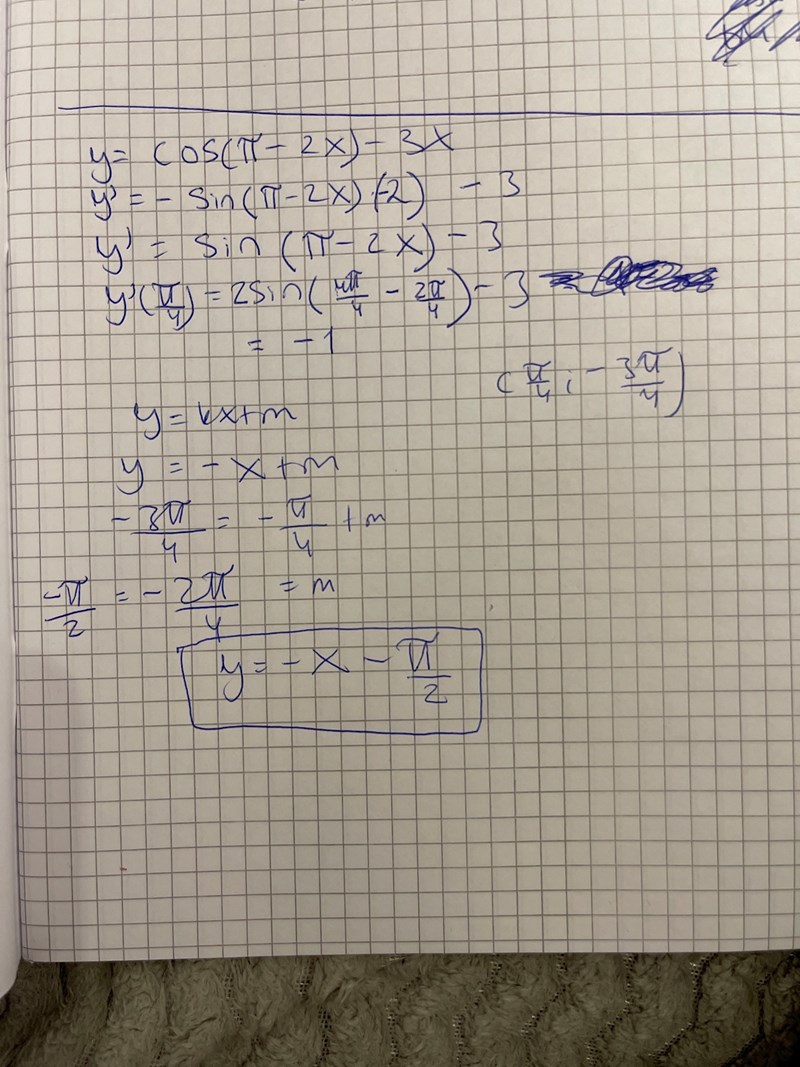 y = cos(π - 2x) - 3x
y' = - sin(π-2x)·(-2) - 3
y' = sin (π - 2x) - 3
y'(π/4) = 2sin(4π/4 - 2π/4) - 3
= -1
(π/4; -3π/4)
y = kx+m
y = -x+m
-3π/4 = -π/4 + m
-π/2 = -2π/4 = m
y = -x - π/2